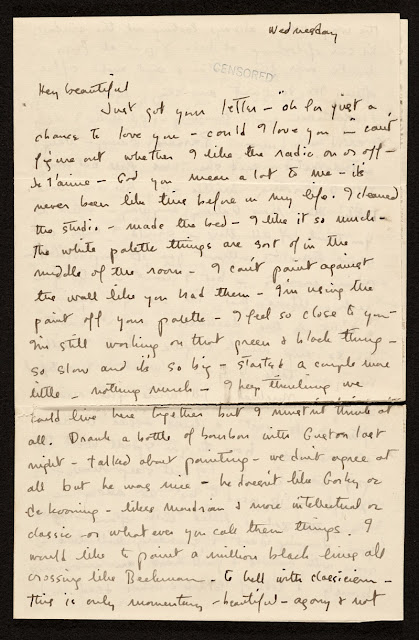 Wednesday
CENSORED
Hey beautiful
Just got your letter - "oh for just a
chance to love you - could I love you" - can't
figure out whether I like the radio on or off -
Je t'aime - God you mean a lot to me - it's
never been like this before in my life. I cleaned
the studio - made the bed - I like it so much -
the white palette things are sort of in the
middle of the room - I can't paint against
the wall like you had them - I'm using the
paint off your palette - I feel so close to you -
I'm still working on that green & black thing -
so slow and it's so big - started a couple more
little - nothing much - I keep thinking we
could live here together but I mustn't think at
all. Drank a bottle of bourbon with Guston last
night - talked about painting - we don't agree at
all but he was nice - he doesn't like Gorky or
de kooning - likes mondrian & more intellectual or
classic - or what ever you call them things. I
would like to paint a million black lines all
crossing like Beckmann. To hell with classicism -
this is only momentary - beautiful - agony & not